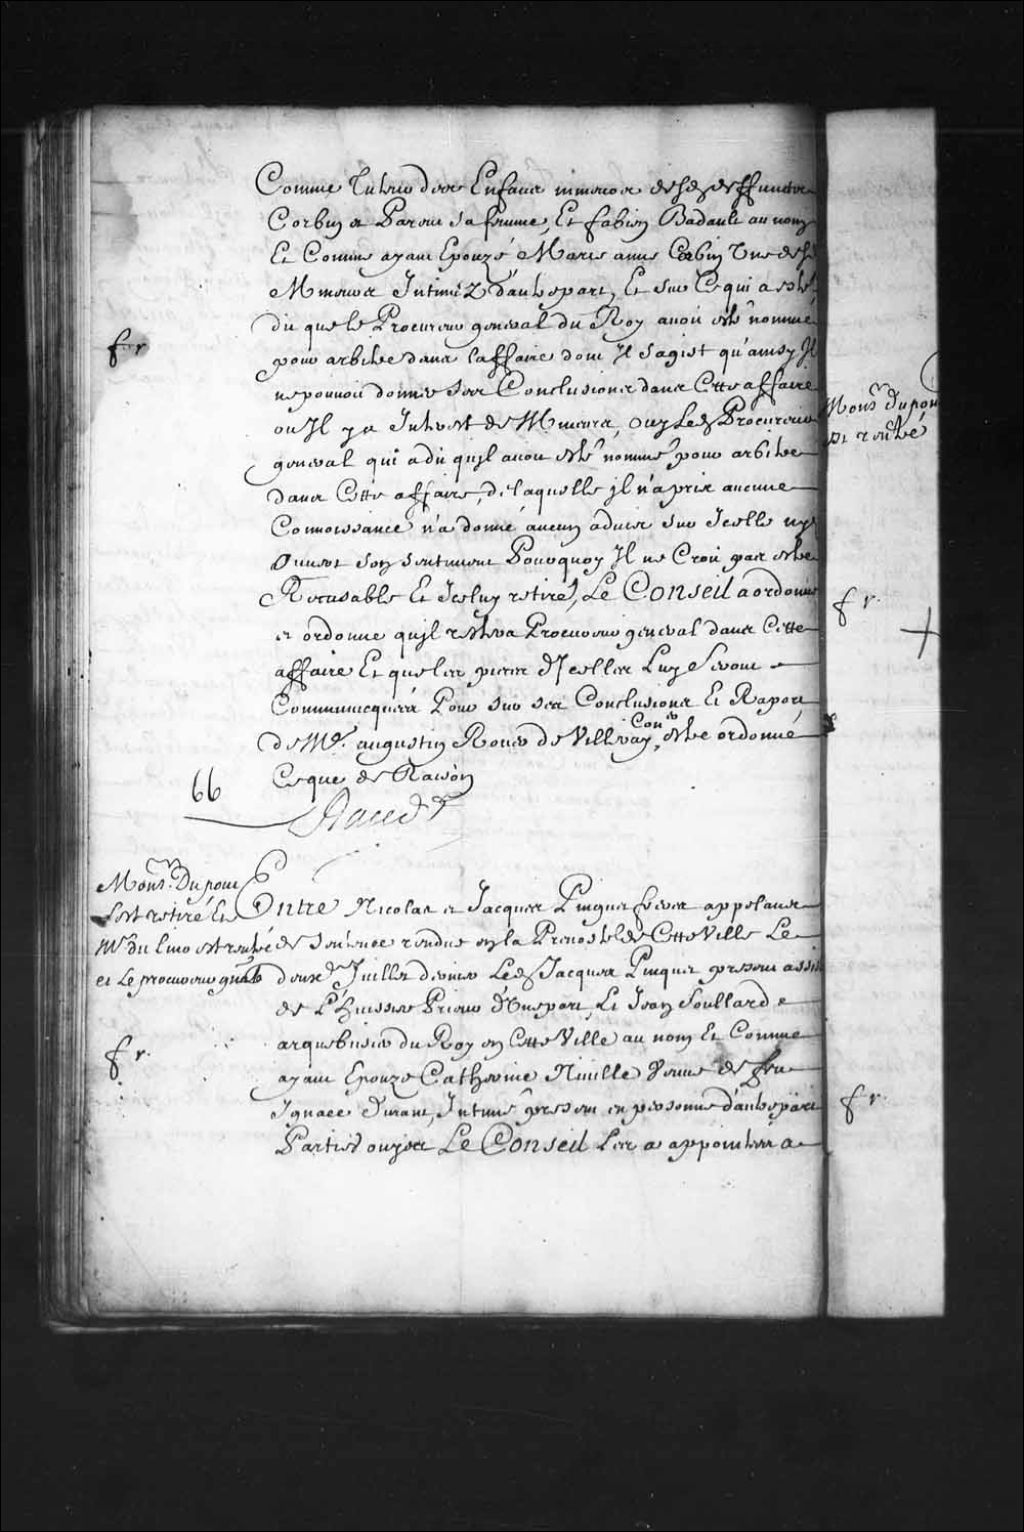 Comme Tuteur des Enfans mineurs desd. deffuncts
Corbin et Parent sa femme, Et fabien Badault au nom
Et Comme ayant Epouzé Marie anne Corbin Une desd.
Mineurs Intimez d'autre part, Et sur Ce qui a esté
dit que le Procureur general du Roy avoit esté nommé
pour arbitre dans l'affaire dont Il s'agist qu'ainsy Il
ne pouvoit donner ses Conclusions dans Cette affaire
ou Il y a Interest de Mineurs, ouy Led. Procureur
general qui a dit qu'il avoit esté nommé pour arbitre
dans Cette affaire, de laquelle il n'a pris aucune
Connoissance n'a donné aucun advis sur Icelle ny
Ouvert son sentiment Pourquoy Il ne Croit pas estre
Recusable Et Iceluy retiré, Le Conseil a ordonné
et ordonne qu'il restera Procureur general dans Cette
affaire Et que les pieces d'Icelles Luy Seront
Communicquées Pour sur ses Conclusions Et Raport
de Me. augustin Rouer de Villeray Coner, estre ordonné
Ce que de Raison
66
Raudot
Mons. Dupont
s'est retiré Et
Mr du lino est rentré
et Le procureur gnal
Entre Nicolas et Jacques Pinguet freres appelans
de sentence rendue en la Prevosté de Cette Ville Le
douze Juillet dernier Led. Jacques Pinguet present assisté
de L'huissier Prieur d'Une part, Et Jean Soullard
arquebusier du Roy en Cette Ville au nom Et Comme
ayant Epouzé Catherine Niville Veuve de feu
Ignace Durant, Intimé present en personne d'autre part
Parties ouyes Le Conseil Les a appointées a
fr
fr.
Mons. Dupont
est rentré
fr.
fr.